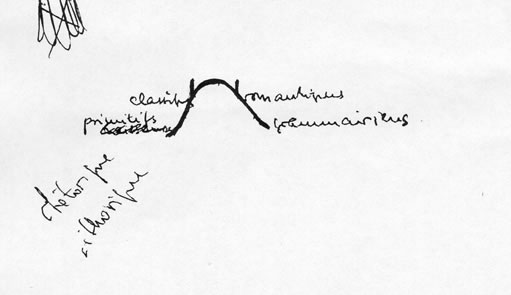 classiques romantiques
primitifs grammairiens
rhétorique